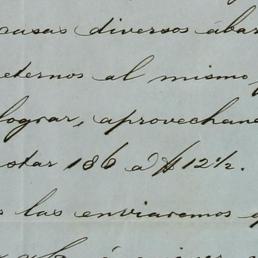 causas diversos abar
eternos al mismo
lograr, aprovechane
star 186 a $12½.
s las enviaremos q